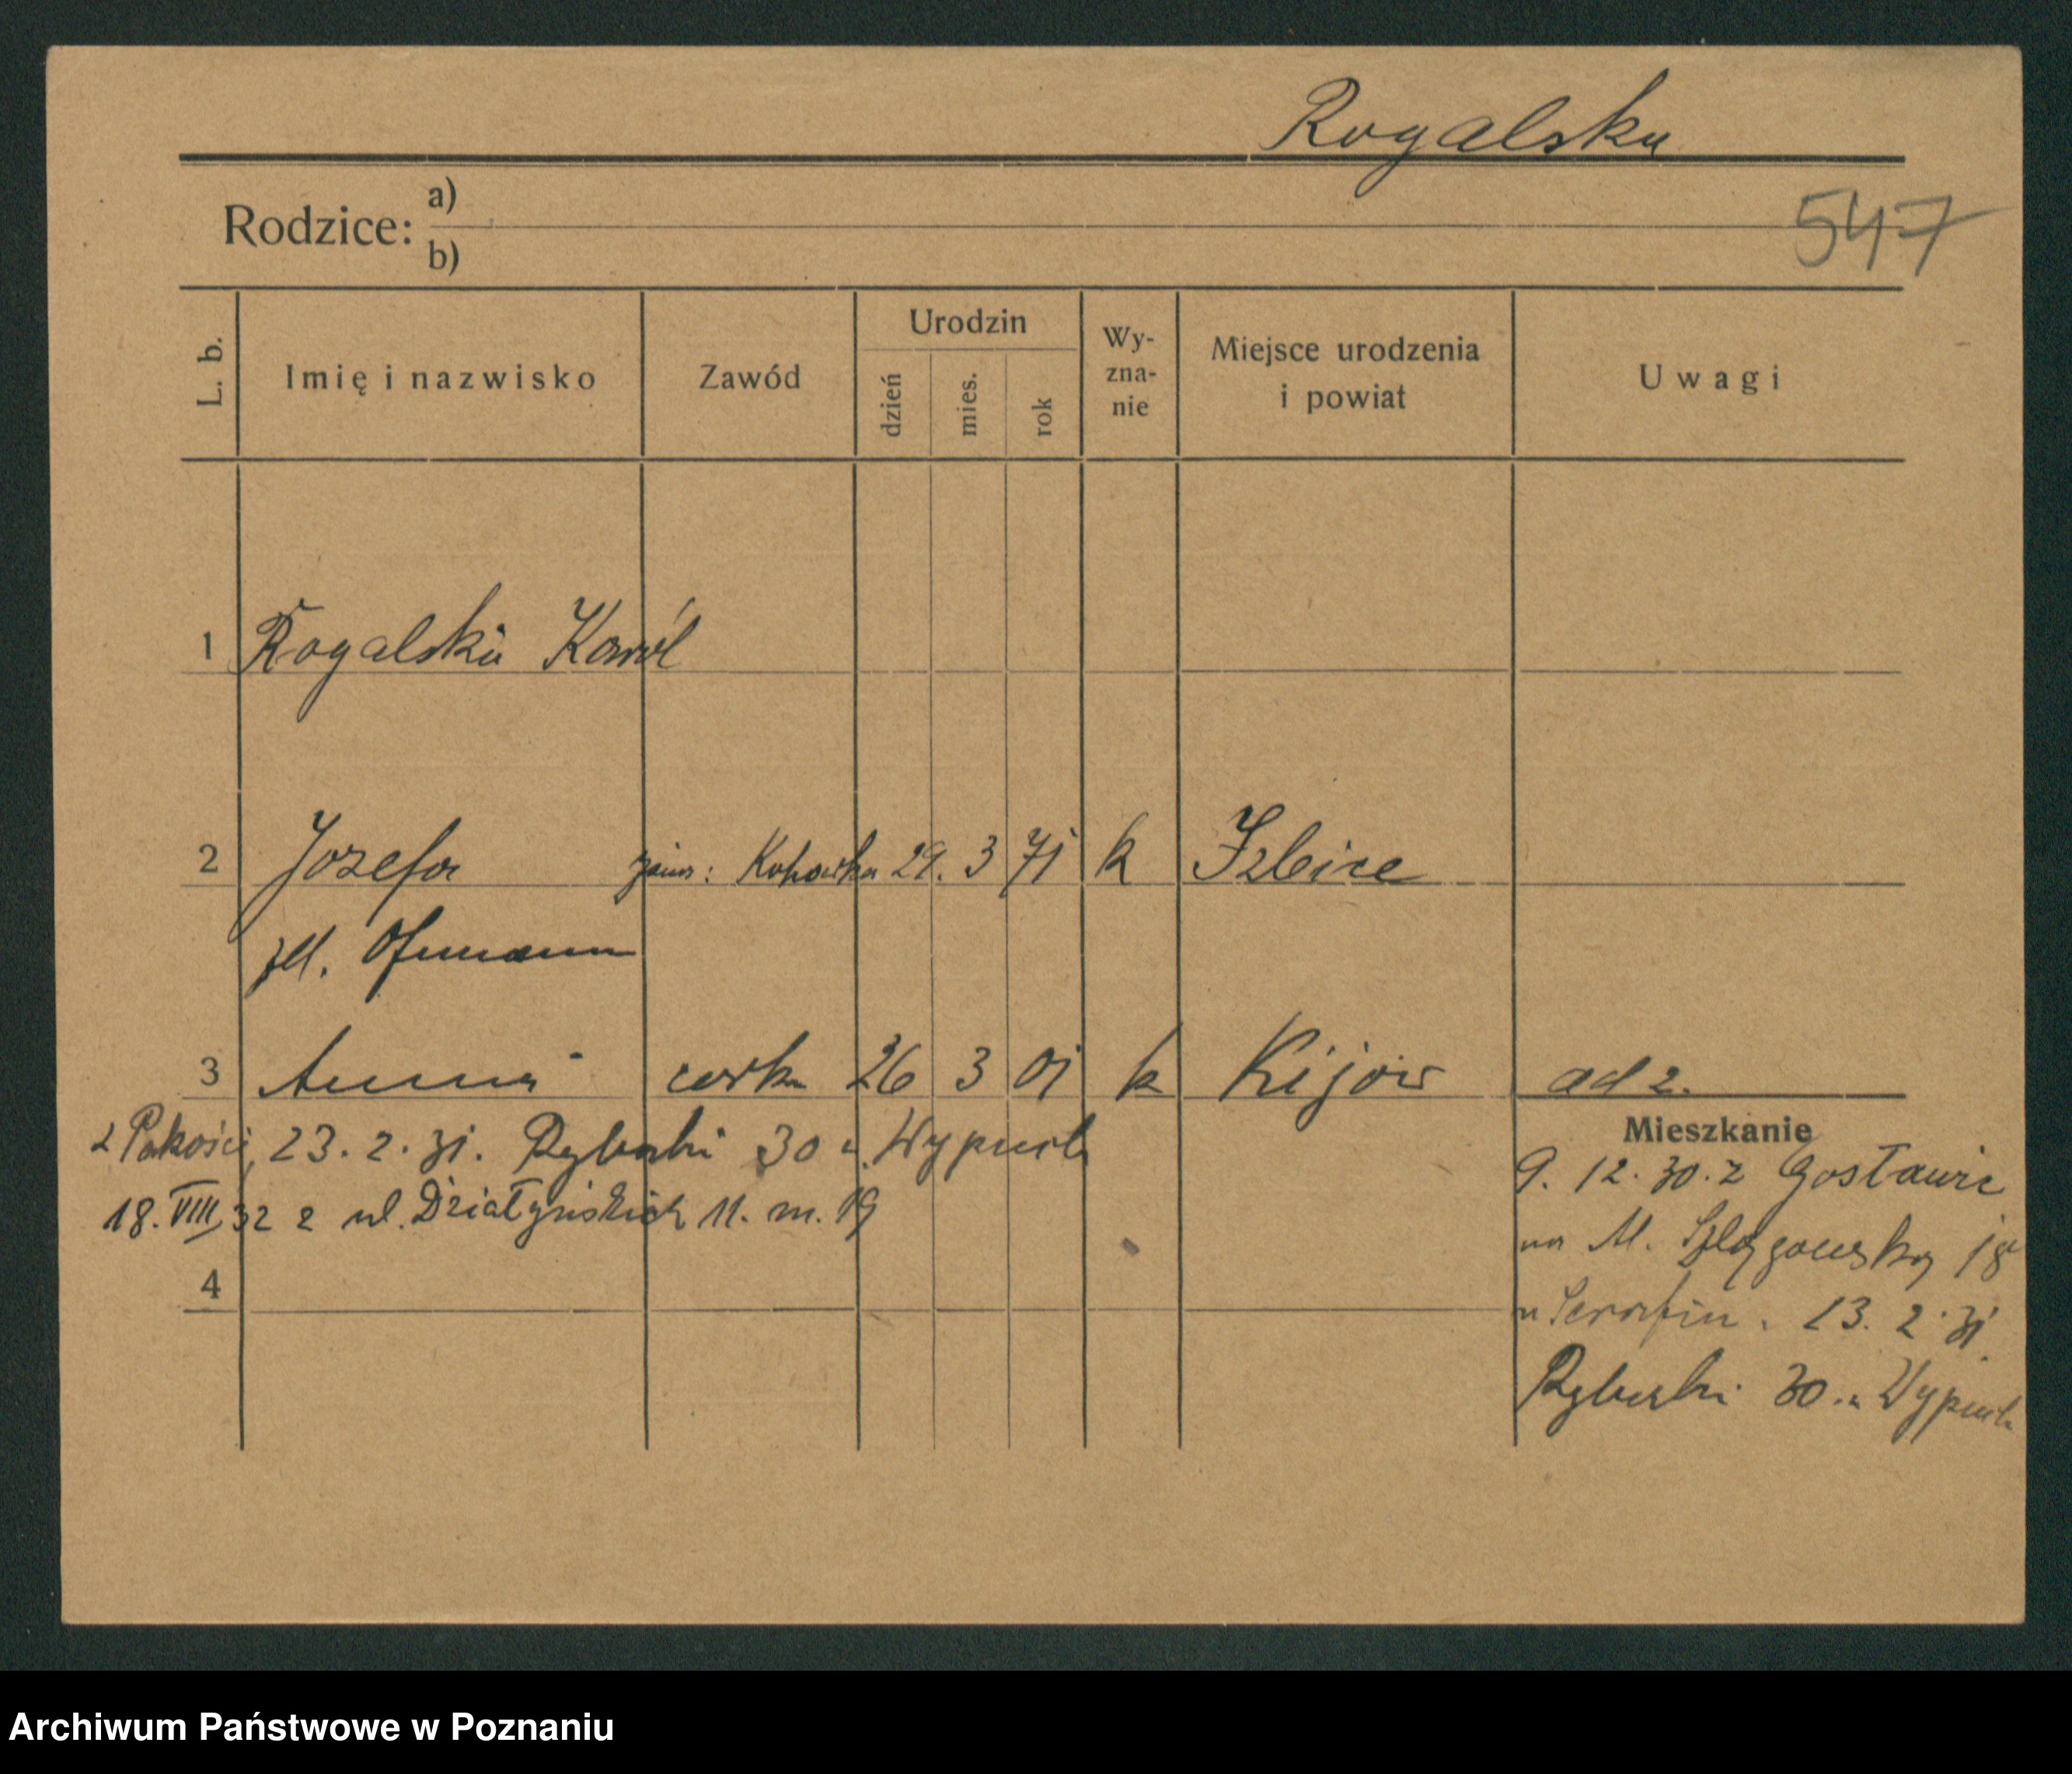 Rogalska
Rodzice: a)
b)
547
L. b.
Imię i nazwisko
Zawód
Urodzin
dzień
mies.
rok
Wy-
zna-
nie
Miejsce urodzenia
i powiat
Uwagi
1 Rogalski Karol
2 Józefa 29. 3 71 k Izbice
3 Anna córka 26 3 01 k Kijów ad 2.
z Pakości, 23. 2. 31. Rybaki 30 u. Wypuch
18. VIII 32 z ul. Działyńskich 11. m. 19
4
Mieszkanie
9. 12. 30. z Gosławic
na M. 18
u Serafin. 13. 2. 31.
Rybaki 30. u Wypuch
Archiwum Państwowe w Poznaniu